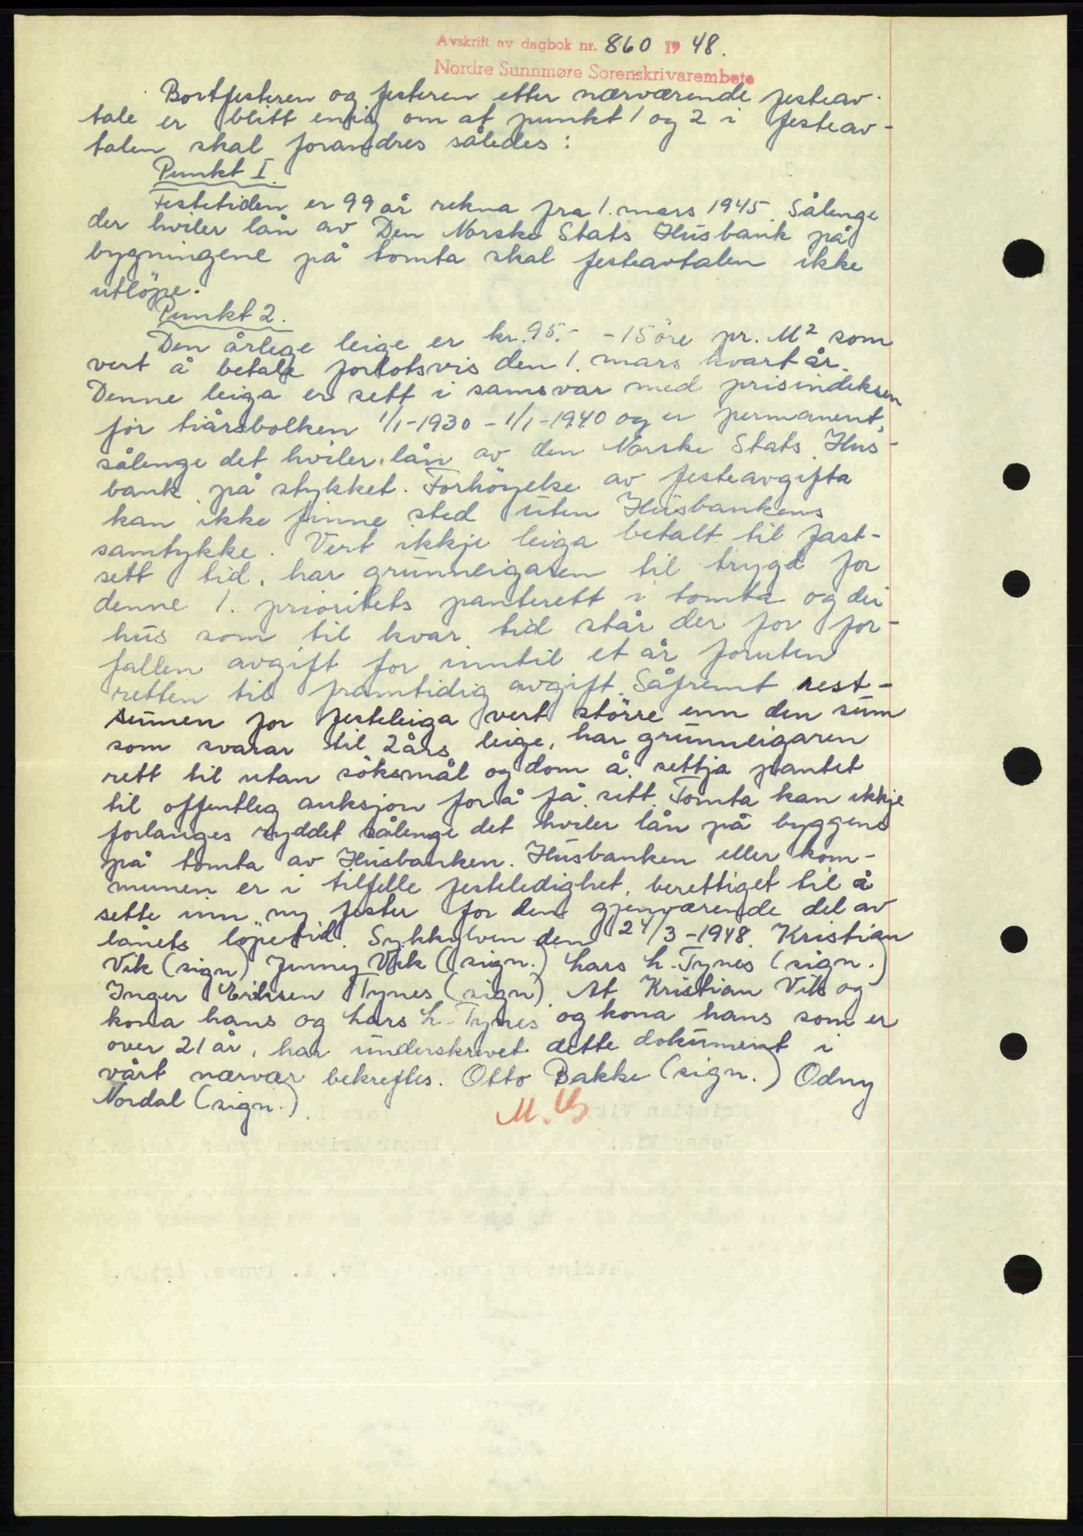 Avskrift av dagbok nr. 860 19 48.
Nordre Sunnmøre Sorenskrivarembete
Bortfesteren og festeren etter nærværende festeav-
tale er blitt enig om at punkt 1 og 2 i festeav-
talen skal forandres således:
Punkt I.
Festetiden er 99 år rekna fra 1. mars 1945. Sålenge
der hviler lån av Den Norske Stats Husbank på
bygningene på tomta skal festeavtalen ikke
utløpe.
Punkt 2.
Den årlege leige er kr. 95.- - 15 öre pr. M² som
vert å betale forlotsvis den 1. mars kvart år.
Denne leiga er sett i samsvar med prisindeksen
for tiårsbolken 1/1-1930 - 1/1-1940 og er permanent,
sålenge det hviler lån av den Norske Stats Hus-
bank på stykket. Forhöyelse av festeavgifta
kan ikke finne sted uten Husbankens
samtykke. Vert ikkje leiga betalt til fast-
sett tid, har grunneigaren til trygd for
denne 1. prioritets panterett i tomta og dei
hus som til kvar tid står der for for-
fallen avgift for inntil et år foruten
retten til framtidig avgift. Såfremt rest-
sumen for festeleiga vert större enn den sum
som svarar til 2 års leige, har grunneigaren
rett til utan söksmål og dom å settja pantet
til offentleg auksjon for å få sitt. Tomta kan ikkje
forlanges ryddet sålenge det hviler lån på byggene
på tomta av Husbanken. Husbanken eller kom-
munen er i tilfelle festeledighet, berettiget til å
sette inn ny fester for den gjenværende del av
lånets löpetid. Sykkylven den 24/3-1948. Kristian
Vik (sign) Jenny Vik (sign.) Lars L. Tynes (sign.)
Inger Eriksen Tynes (sign). At Kristian Vik og
kona hans og Lars L. Tynes og kona hans som er
over 21 år, har underskrevet dette dokument i
vårt nærvær bekreftes. Otto Bakke (sign.) Odny
Nordal (sign.)